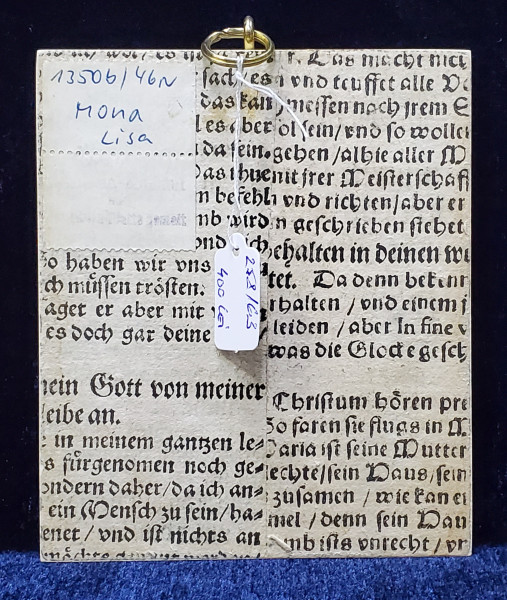 13506/46N
Mona
Lisa
sach/es
das kan
l es aber
da sein.
Das thue
n befehl
mb wird
ond ich
So haben wir vns
ch müssen trösten.
aget er aber mit
es doch gar deine
mein Gott von meiner
leibe an.
e in meinem gantzen le⸗
s fürgenomen noch ge⸗
ondern daher/da ich an⸗
ein Mensch zu sein/ha⸗
enet/vnd ist nichts an
253/63
400 lei
r. Das macht nich
vnd teuffet alle
messen nach jrem S
ol sein/vnd so wollen
gehen/alhie aller M
mit jrer Meisterschaff
vnd richten/aber er
n geschrieben stehet
ehalten in deinen we
tet. Da denn bekenn
rhalten/vnd einem j
leiden/aber In fine v
was die Glocke gesch
Christum hören pre
So faren sie flugs in M
Maria ist seine Mutter
echte/sein Haus/sein
zusamen/wie kan ei
mel/denn sein Hau
mb ists vnrecht/vn